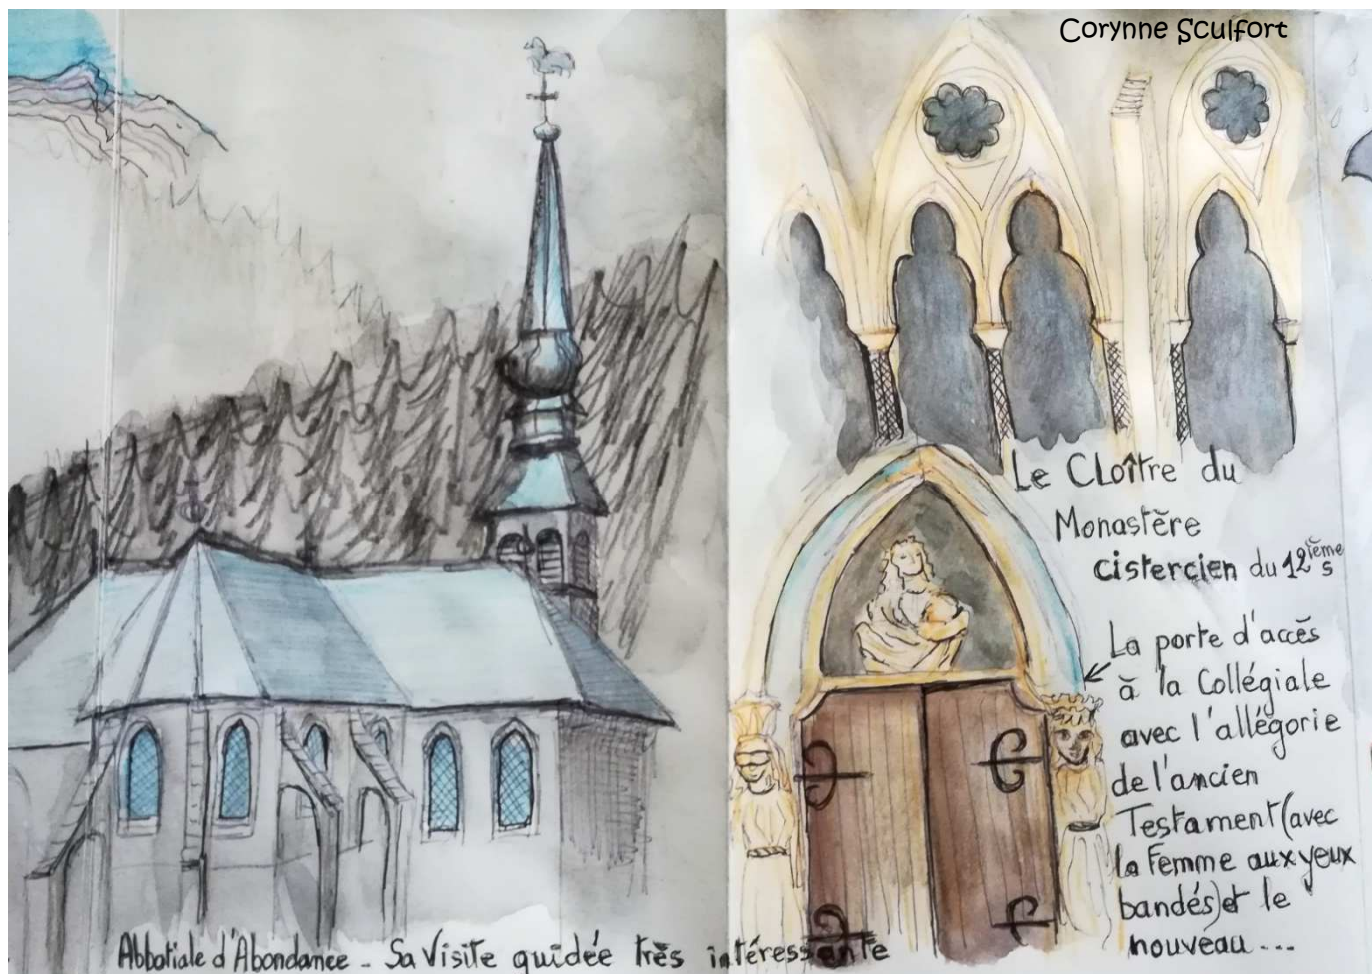 Corynne Sculfort
Le CLoître du
Monastère
cistercien du 12ième s
La porte d'accès
à la Collégiale
avec l'allégorie
de l'ancien
Testament (avec
la Femme aux yeux
bandés) et le
nouveau...
Abbatiale d'Abondance - Sa Visite guidée très intéressante